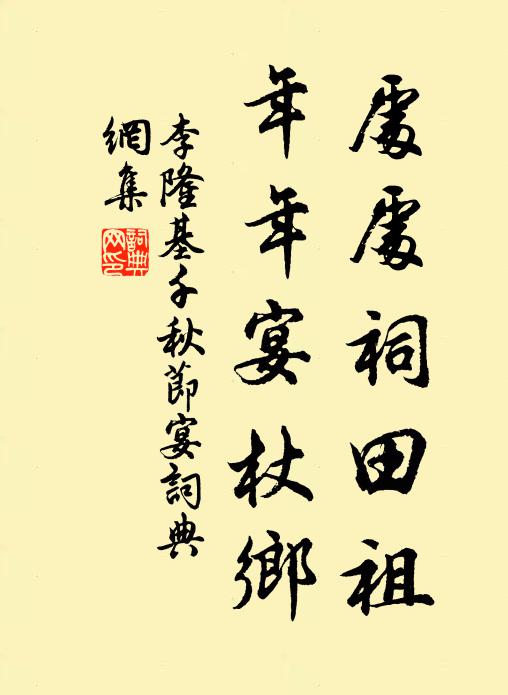 處處祠田祖
年年宴杖鄉
李隆基千秋節宴詞典
網集
詞典网印